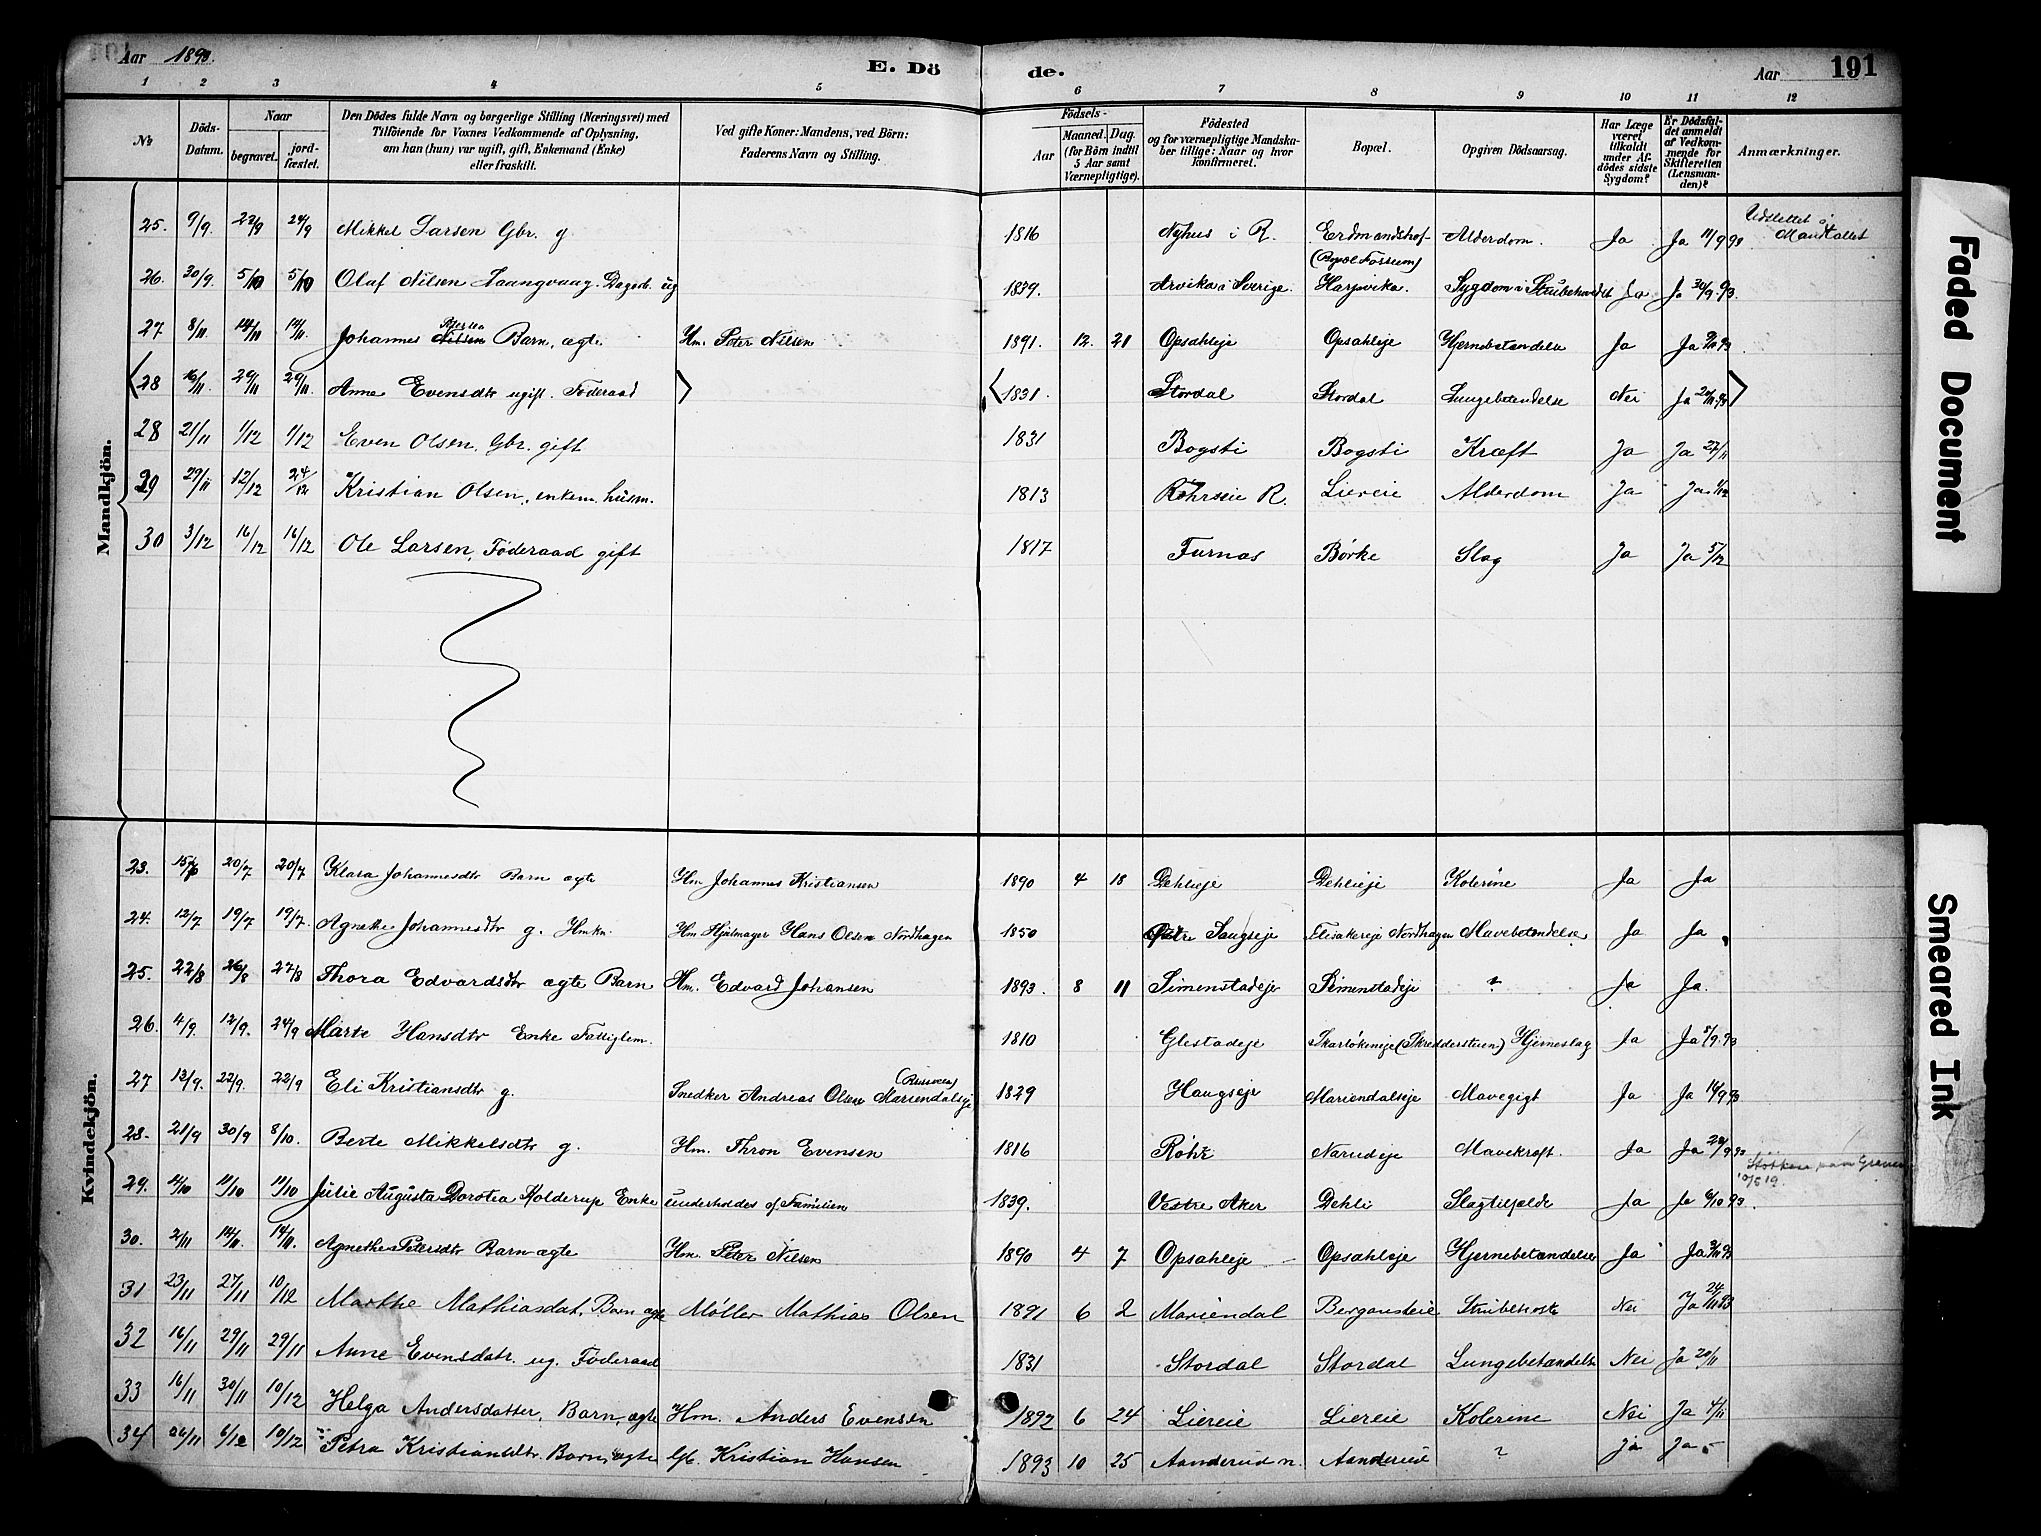 Aar 1893. E. Dö de. Aar 191
1 2 3 4 5 6 7 8 9 10 11 12
No. Döds-Datum. Naar begravet. jord-fæstet. Den Dödes fulde Navn og borgerlige Stilling (Næringsvei) med Tilföiende for Voxnes Vedkommende af Oplysning, om han (hun) var ugift, gift, Enkemand (Enke) eller fraskilt. Ved gifte Koner: Mandens, ved Börn: Faderens Navn og Stilling. Födsels- Aar Maaned. Dag. (for Börn indtil 5 Aar samt Værnepligtige). Födested og for værnepligtige Mandskaber tillige: Naar og hvor konfirmeret. Bopæl. Opgiven Dödsaarsag. Har Læge været tilkaldt under Afdödes sidste Sygdom? Er Dödsfaldet anmeldt af Vedkommende for Skifteretten (Lensmanden)? Anmærkninger.
Mandkjön.
25. 9/9. 22/9 24/9 Mikkel Larsen Gbr. g 1816 Nyhus i R. Erdmandshof Alderdom. Ja Ja 11/9 93 Udslettet i Mandtallet
26. 30/9. 5/10 5/10 Olaf Nilsen Dagarb. ug 1839. Arvika i Sverige. (Bopæl Fossum) Harjsvika. Sygdom i Strubehovedet Ja Ja 30/9 93.
27 8/11 14/11 14/11 Johannes Nilsen Barn, ægte. Hm. Peter Nilsen 1891. 12. 21 Opsahleje Opsahleje Hjernebetændelse Ja Ja 9/11 93
(28 16/11 29/11 29/11 Anne Evensdtr ugift. Föderaad ) (1831. Stordal Stordal Lungebetændelse Nei Ja 20/11 93)
28 21/11 1/12 1/12 Even Olsen, Gbr. gift 1831 Bogsti Bogsti Kræft Ja Ja 27/11
29 29/11 12/12 24/12 Kristian Olsen, enkem. husm. 1813 Röhrseie R. Liereie Alderdom Ja Ja 1/12
30 3/12 16/12 16/12 Ole Larsen, Föderaad gift 1817 Furnæs Börke Slag Ja Ja 5/12
Kvindekjön.
23. 15/7 20/7 20/7 Klara Johannesdtr Barn ægte Hm Johannes Kristiansen 1890 4 18 Dehlieje Dehlieje Kolerine Ja Ja
24. 12/7 19/7 19/7. Agnethe Johannesdtr g. Hmkn. Hm Hjulmager Hans Olsen Nordhagen 1850 Østre Saugseje Flisakereje Nordhagen Mavebetændelse Ja Ja
25. 22/8 26/8 27/8 Thora Edvardsdtr ægte Barn Hm. Edvard Johansen 1893. 8 11 Simenstadeje Simenstadeje ? Ja Ja.
26. 4/9. 12/9. 24/9 Marte Hansdtr Enke Fattiglem. 1810 Glestadeje (Skredderstuen) Hjerneslag Ja Ja 5/9. 93
27 13/9. 22/9. 22/9 Eli Kristiansdtr g. Snedker Andreas Olsen Mariendalseje 1829 Haugseje Mariendalseje Mavegigt Ja Ja 14/9 93
28. 21/9 30/9 8/10. Berte Mikkelsdtr g. Hm. Thron Evensen 1816 Röhr Narudeje Mavekræft. Ja Ja 28/9 93
29. 4/10 11/10 11/10 Julie Augusta Dorotea Kolderup Enke underholdes af Familien 1839. Vestre Aker Dehli Slagtilfælde Ja Ja 6/10 93 Stökken paa Graven 10/5 19.
30. 2/11 14/11. 14/11. Agnethe Petersdtr Barn ægte Hm. Peter Nilsen 1890 4 7 Opsahleje Opsahleje Hjernebetændelse Ja Ja 3/11 93
31 23/11 27/11 10/12 Marthe Mathiasdat. Barn ægte Møller Mathias Olsen 1891 6 2 Mariendal Bergauseie Strubehoste Nei Ja 24/11 93
32 16/11 29/11 29/11 Anne Evensdatr. ug. Föderaad 1831 Stordal Stordal Lungebetændelse Nei Ja 20/11
33 16/11 30/11 10/12 Helga Andersdatter, Barn, ægte Hm. Anders Evensen 1892 6 24 Liereie Liereie Kolerine Nei Ja
34 26/11 6/12 10/12 Petra Kristiansdtr Barn, ægte Kristian Hansen 1893 10 25 Aanderud n. Aanderud ? Ja Ja
Faded Document
Smeared Ink